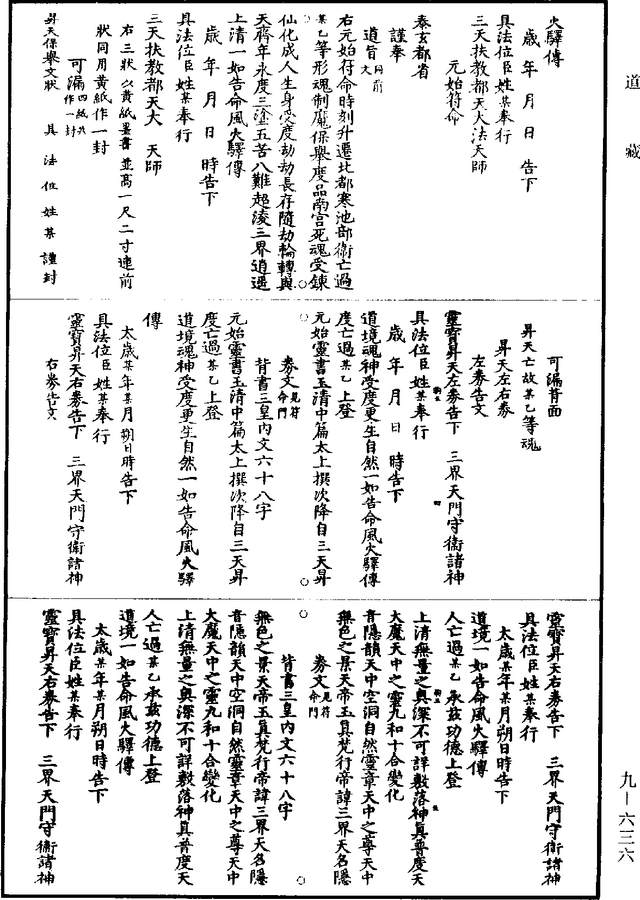 道藏
火驛傳
歲年月日告下
具法位臣姓某奉行
三天扶教都天大法天師
元始符命
奉玄都省
謹奉
道旨大同前
右元始符命時刻升遷北都寒池部衛亡過
某乙等形魂制魔保舉度品南宫死魂受鍊
仙化成人生身受度劫劫長存隨劫輪轉與
天齊年永度三塗五苦八難超淩三界逍遥
上清一如告命風火驛傳
歲年月日時告下
具法位臣姓某奉行
三天扶教都天大天師
右三狀以黄紙墨書並高一尺二寸連前
狀同用黄紙作一封
可漏四紙共作一封
昇天保舉文狀具法位姓某謹封
可漏背面
昇天亡故某乙等魂
昇天左右券
左券告文
靈寳昇天左券告下三界天門守衛諸神
具法位臣姓某奉行
歲年月日時告下
道境魂神受度更生自然一如告命風火驛傳
度亡過某乙上登
元始靈書玉清中篇太上撰次降自三天昇
券文見符命門
背書三皇内文六十八字
元始靈書玉清中篇太上撰次降自三天昇
度亡過某乙上登
道境魂神受度更生自然一如告命風火驛
傳
太歲某年某月朔日時告下
具法位臣姓某奉行
靈寳昇天右券告下三界天門守衛諸神
右券告文
靈寳昇天右券告下三界天門守衛諸神
具法位臣姓某奉行
太歲某年某月朔日時告下
道境一如告命風火驛傳
人亡過某乙承兹功德上登
上清無量之奥深不可詳敷落神真普度天
大魔天中之靈九和十合變化
音隱韻天中空洞自然靈章天中之尊天中
無色之景天帝玉真梵行帝諱三界天名隱
券文見符命門
背書三皇内文六十八字
無色之景天帝玉真梵行帝諱三界天名隱
音隱韻天中空洞自然靈章天中之尊天中
大魔天中之靈九和十合變化
上清無量之奥深不可詳敷落神真普度天
人亡過某乙承兹功德上登
道境一如告命風火驛傳
太歲某年某月朔日時告下
具法位臣姓某奉行
靈寳昇天右券告下三界天門守衛諸神
九—六三六